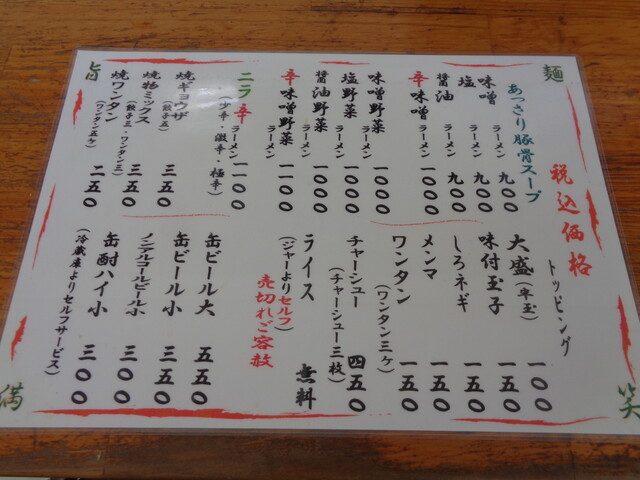 麺
税込価格
あっさり豚骨スープ
味噌ラーメン 九〇〇
塩ラーメン 九〇〇
醤油ラーメン 九〇〇
辛味噌ラーメン 一〇〇〇
味噌野菜ラーメン 一〇〇〇
塩野菜ラーメン 一〇〇〇
醤油野菜ラーメン 一〇〇〇
辛味噌野菜ラーメン 一一〇〇
ニラ辛ラーメン 一一〇〇
・少辛・激辛・極辛)
焼ギョウザ(餃子五) 三五〇
焼物ミックス(餃子三・ワンタン三) 三五〇
焼ワンタン(ワンタン五ケ) 二五〇
旨
トッピング
大盛(半玉) 一〇〇
味付玉子 一五〇
しろネギ 一五〇
メンマ 一五〇
ワンタン(ワンタン三ケ) 一五〇
チャーシュー(チャーシュー三枚) 四五〇
ライス 無料
(ジャーよりセルフ)
売切れご容赦
缶ビール大 五五〇
缶ビール小 三五〇
ノンアルコールビール小 三〇〇
缶酎ハイ小 三〇〇
(冷蔵庫よりセルフサービス)
笑
満